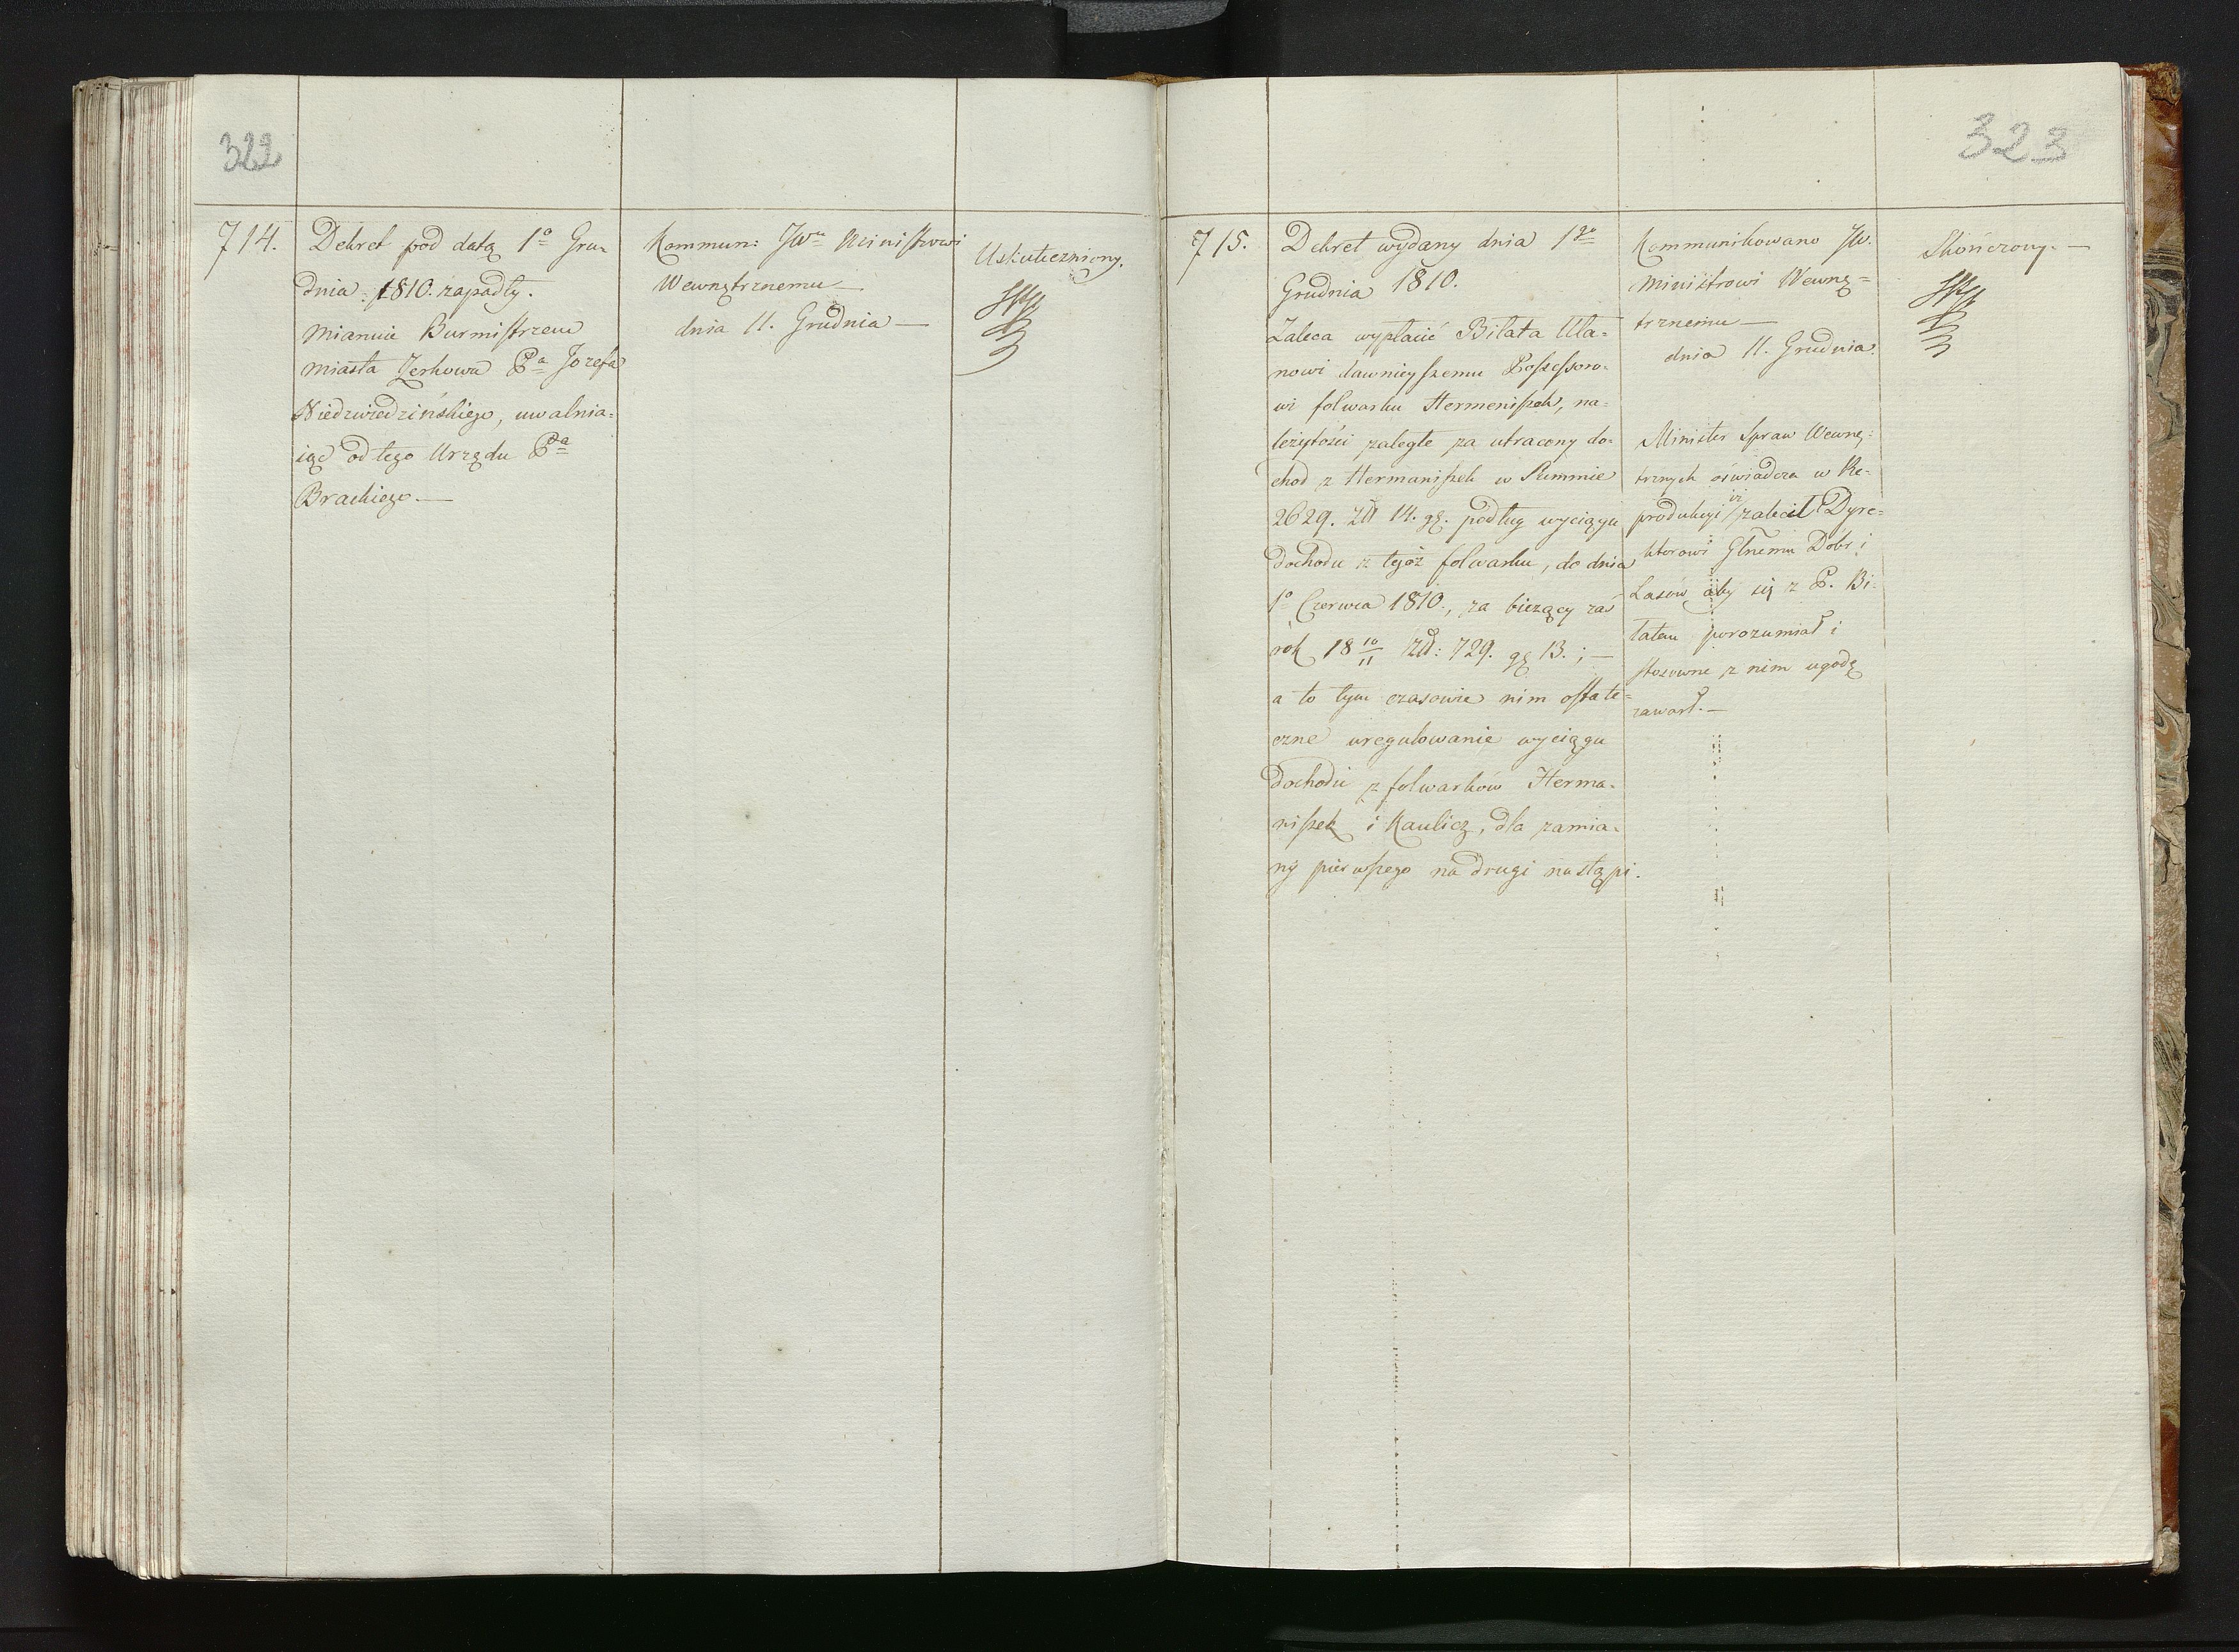 322
714.
Dekret pod datą 1º Gru-
dnia 1810. zapadły.
Mianuie Burmistrzem
miasta Zerkowa Pª Jozefa
Niedzwiedzińskiego, uwalnia-
iąc od tego Urzędu Pª
Brackiego.—
Kommun: JWu Ministrowi
Wewnętrznemu—
dnia 11. Grudnia—
Uskuteczniony.
323
715.
Dekret wydany dnia 1go
Grudnia 1810.
Zaleca wypłacić Bilata Uła-
nowi dawnieyszemu Possessoro-
wi folwarku Hermeniszek, na-
leżytości zaległe za utracony do-
chod z Hermaniszek w Summie
2629. Zł 14. gr. podług wyciągu
dochodu z tegoż folwarku, do dnia
1º Czerwca 1810., za bieżący zaś
rok 18 10/11 Zł: 729. gr 13.;—
a to tym czasowie nim ostate-
czne uregulowanie wyciągu
dochodu z folwarków Herma-
niszek i Kaulicz, dla zamia-
ny pierwszego na drugi nastąpi.
Kommunikowano JW.
Ministrowi Wewnę=
trznemu—
dnia 11. Grudnia.
Minister Spraw Wewnę-
trznych oświadcza w Re-
produkcyi iż zalecił Dyre-
ktorowi Głnemu Dóbr i
Lasów aby się z P. Bi-
łatem porozumiał i
stosowne z nim ugodę
zawarł.—
Skończony.—